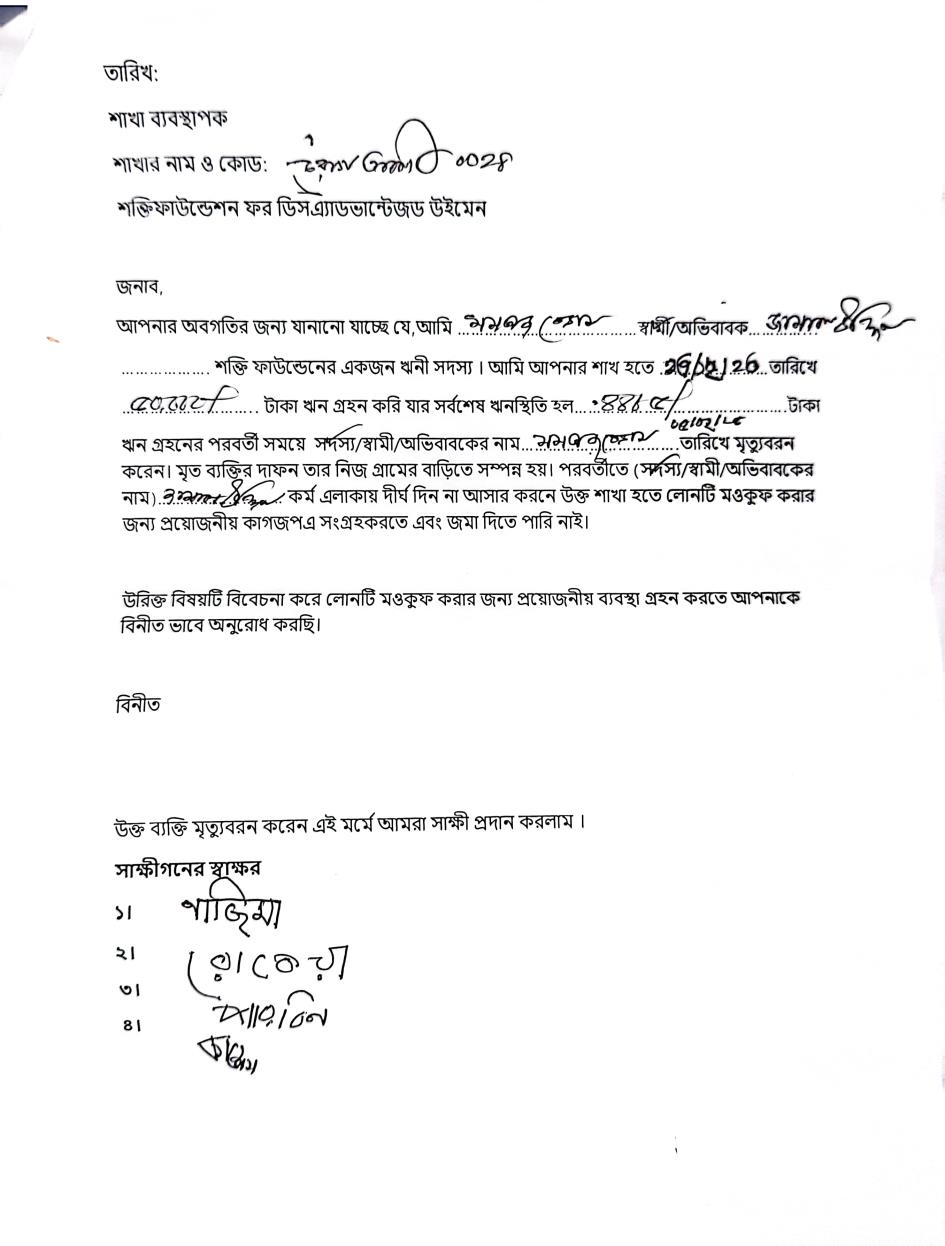 তারিখ:
শাখা ব্যবস্থাপক
শাখার নাম ও কোড: ০০২৪
শক্তিফাউন্ডেশন ফর ডিসএ্যাডভান্টেজড উইমেন
জনাব,
আপনার অবগতির জন্য যানানো যাচ্ছে যে,আমি ............ স্বামী/অভিবাবক
.................. শক্তি ফাউন্ডেনের একজন ঋনী সদস্য। আমি আপনার শাখ হতে ............ তারিখে
............ টাকা ঋন গ্রহন করি যার সর্বশেষ ঋনস্থিতি হল ............ টাকা
ঋন গ্রহনের পরবর্তী সময়ে সর্দস্য/স্বামী/অভিবাবকের নাম............ তারিখে মৃত্যুবরন
করেন। মৃত ব্যক্তির দাফন তার নিজ গ্রামের বাড়িতে সম্পন্ন হয়। পরবর্তীতে (সর্দস্য/স্বামী/অভিবাবকের
নাম)............ কর্ম এলাকায় দীর্ঘ দিন না আসার করনে উক্ত শাখা হতে লোনটি মওকুফ করার
জন্য প্রয়োজনীয় কাগজপএ সংগ্রহকরতে এবং জমা দিতে পারি নাই।
উরিক্ত বিষয়টি বিবেচনা করে লোনটি মওকুফ করার জন্য প্রয়োজনীয় ব্যবস্থা গ্রহন করতে আপনাকে
বিনীত ভাবে অনুরোধ করছি।
বিনীত
উক্ত ব্যক্তি মৃত্যুবরন করেন এই মর্মে আমরা সাক্ষী প্রদান করলাম ।
সাক্ষীগনের স্বাক্ষর
১।
২। রোকেয়া
৩।
৪।